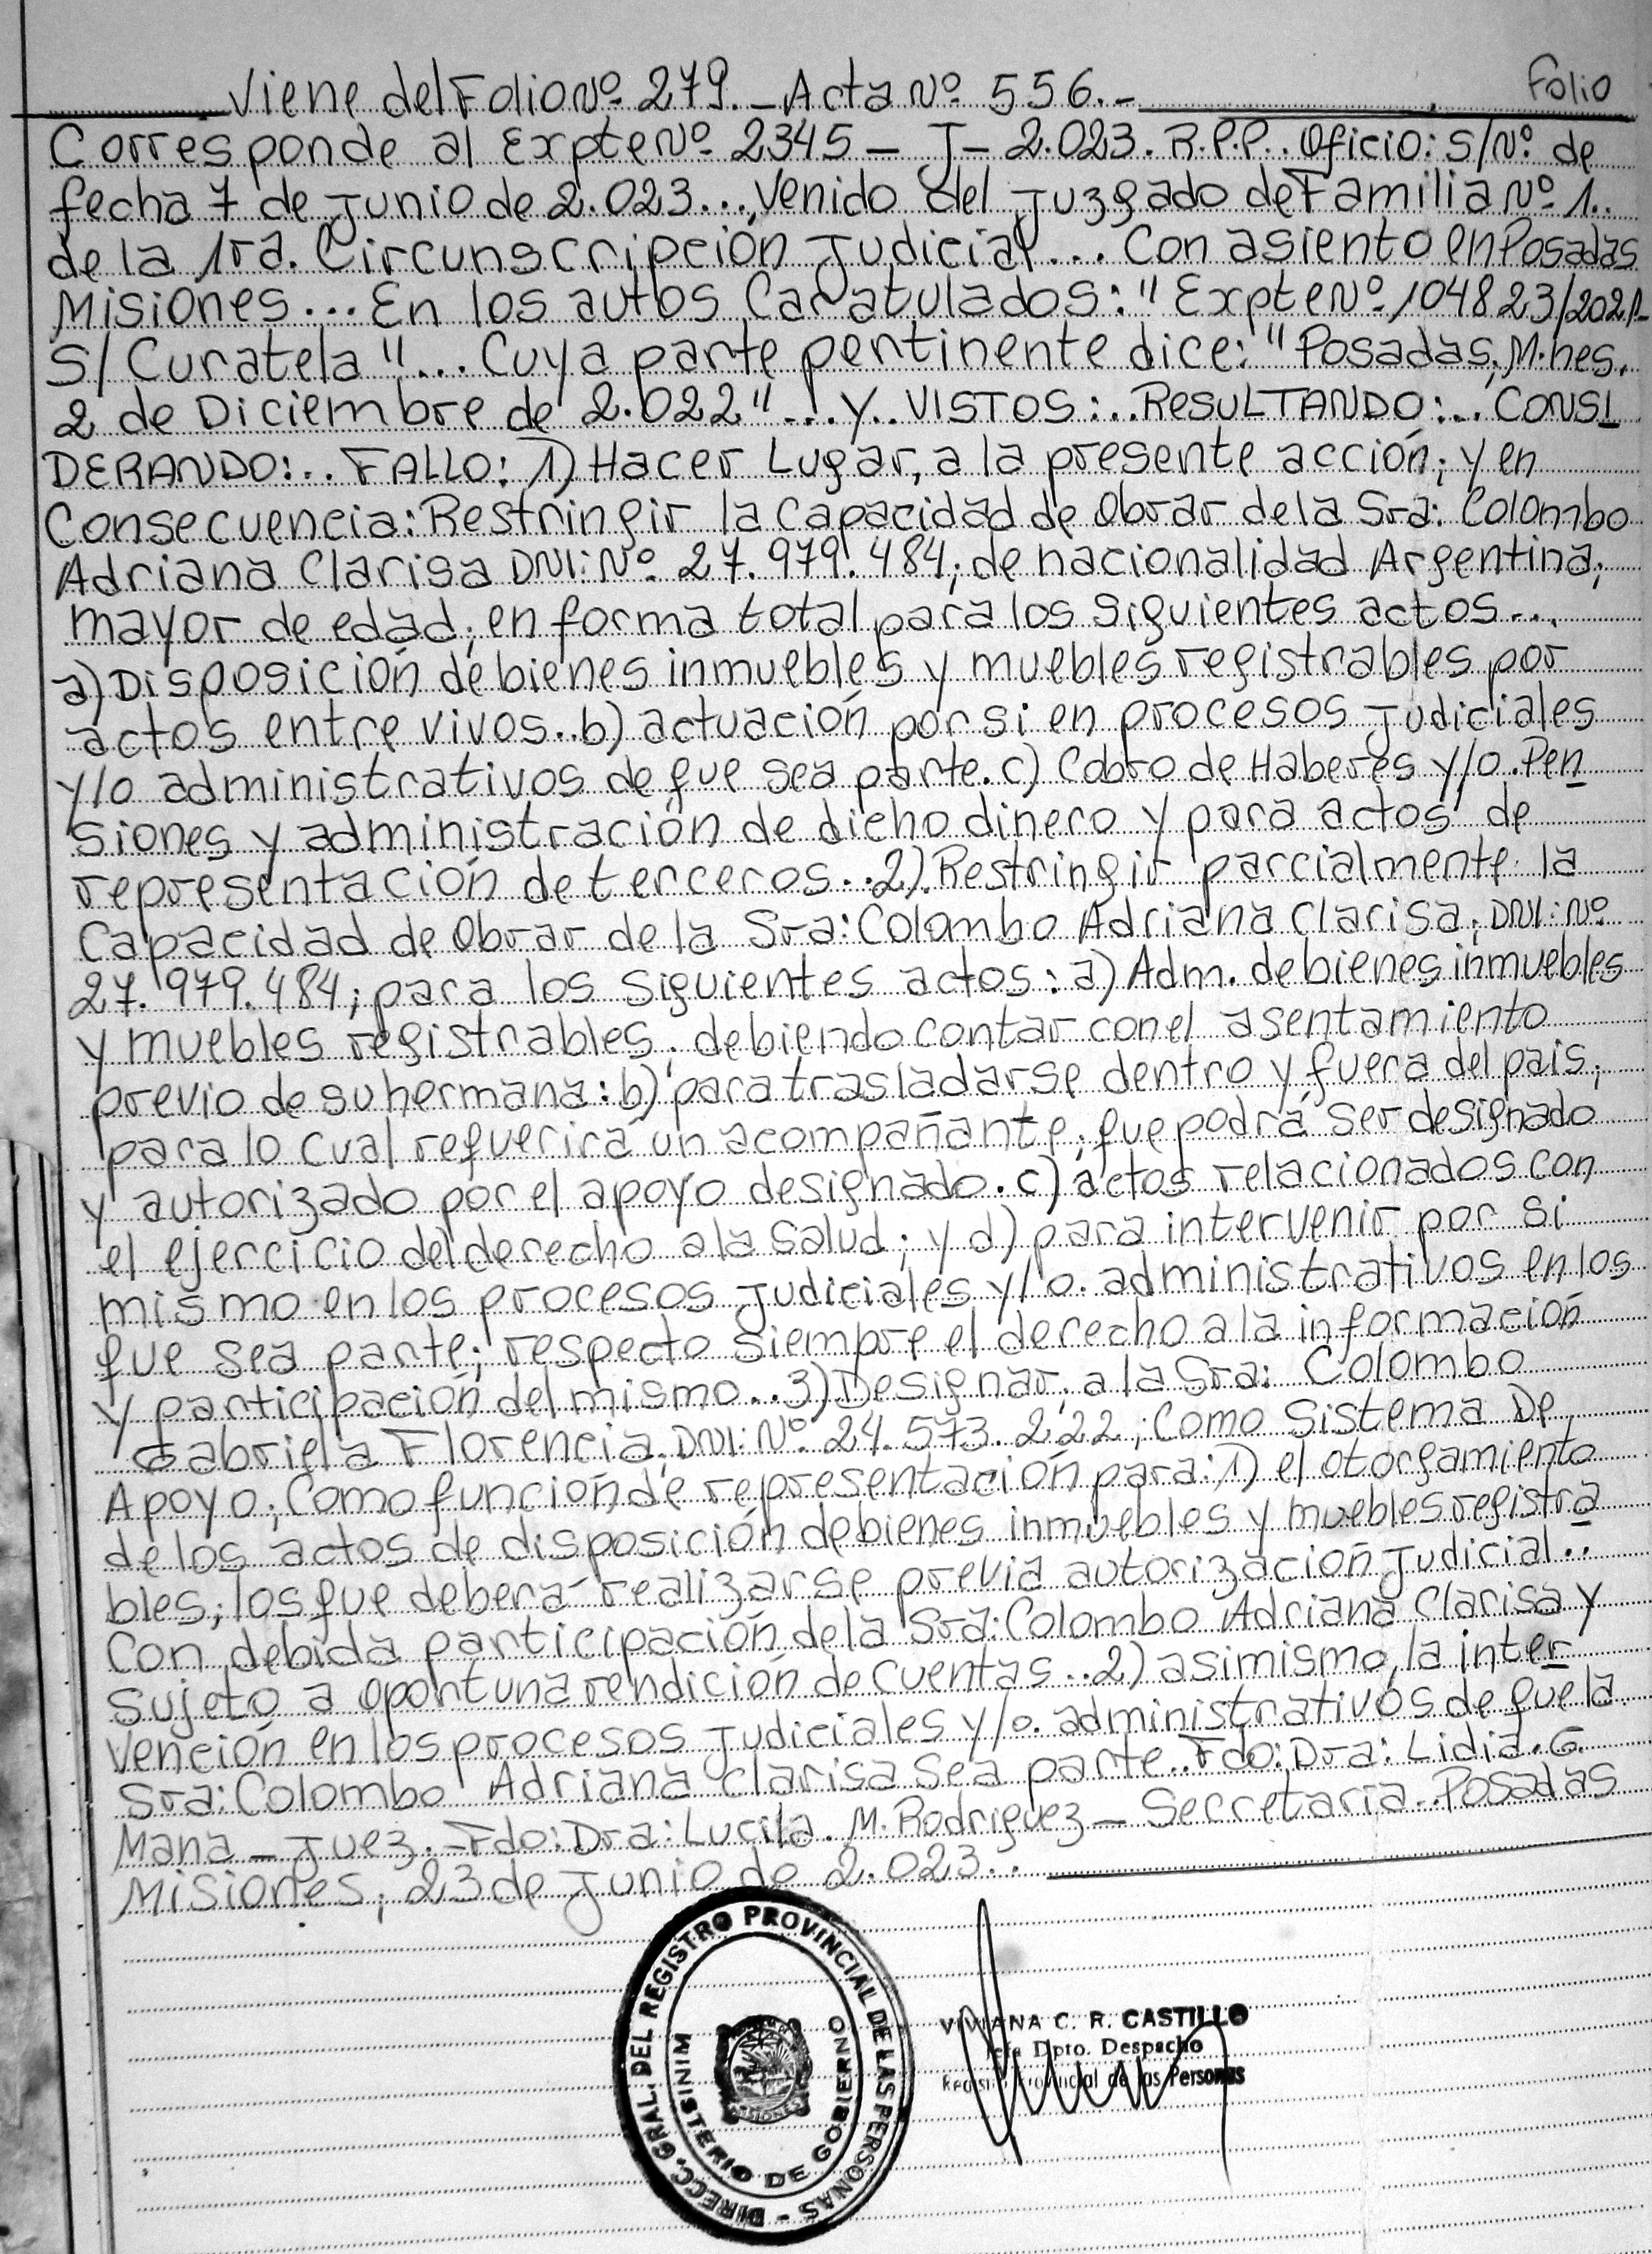 Viene del Folio Nº 279. - Acta Nº 556. -
Folio
Corresponde al Expte Nº 2345 - J - 2.023. R.P.P.. Oficio: S/Nº de
fecha 7 de Junio de 2.023..., Venido del Juzgado de Familia Nº 1..
de la 1ra. Circunscripción Judicial... Con asiento en Posadas
Misiones... En los autos Caratulados: "Expte Nº 104823/2021-
S/ Curatela"... Cuya parte pertinente dice: "Posadas, M.nes.
2 de Diciembre de 2.022"... Y.. VISTOS:.. RESULTANDO:.. CONSI
DERANDO:.. FALLO: 1) Hacer Lugar, a la presente acción; y en
Consecuencia: Restringir la Capacidad de Obrar de la Sra: Colombo
Adriana Clarisa DNI: Nº. 27.979.484; de nacionalidad Argentina;
mayor de edad; en forma total para los siguientes actos...
a) Disposición de bienes inmuebles y muebles registrables por
actos entre vivos.. b) actuación por si en procesos Judiciales
y/o administrativos de que sea parte. c) Cobro de Haberes y/o. Pen
siones y administración de dicho dinero y para actos de
representación de terceros.. 2). Restringir parcialmente la
Capacidad de Obrar de la Sra: Colombo Adriana Clarisa; DNI: Nº
27.979.484; para los siguientes actos: a) Adm. de bienes inmuebles
y muebles registrables. debiendo contar con el asentamiento
previo de su hermana: b) para trasladarse dentro y fuera del pais;
para lo cual requerirá un acompañante; que podrá ser designado
y autorizado por el apoyo designado. c) actos relacionados con
el ejercicio del derecho a la salud; y d) para intervenir por si
mismo en los procesos Judiciales y/o. administrativos en los
que sea parte; respecto siempre el derecho a la información
y participación del mismo.. 3) Designar, a la Sra: Colombo
Gabriela Florencia. DNI: Nº. 24.573.222; Como Sistema De
Apoyo; Como función de representación para: 1) el otorgamiento
de los actos de disposición de bienes inmuebles y muebles registra
bles; los que deberá realizarse previa autorización Judicial..
Con debida participación de la Sra: Colombo Adriana Clarisa y
sujeto a oportuna rendición de cuentas.. 2) asimismo, la inter
vención en los procesos Judiciales y/o. administrativos de que la
Sra: Colombo Adriana Clarisa sea parte.. Fdo: Dra: Lidia. G.
Mana - Juez. - Fdo: Dra: Lucila. M. Rodriguez - Secretaria.. Posadas
Misiones; 23 de Junio de 2.023..
DIRECC. GRAL. DEL REGISTRO PROVINCIAL DE LAS PERSONAS -
MINISTERIO DE GOBIERNO
MISIONES
VIVIANA C. R. CASTILLO
Jefa Dpto. Despacho
Registro Provincial de las Personas